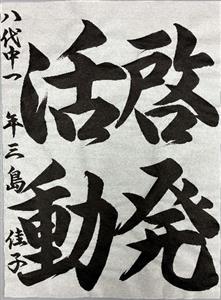 啓発
活動
八代中一年三島佳子